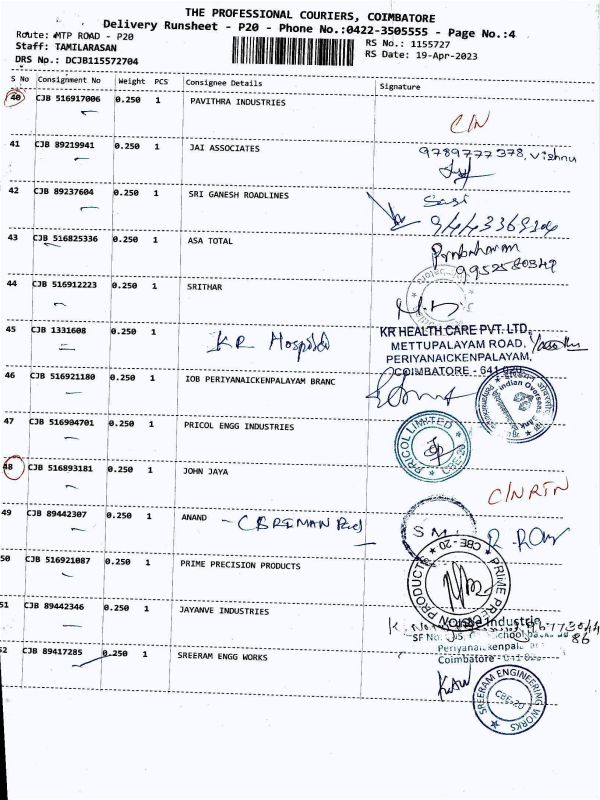 THE PROFESSIONAL COURIERS, COIMBATORE
Delivery Runsheet - P20 - Phone No.:0422-3505555 - Page No.:4
Route: MTP ROAD - P20
Staff: TAMILARASAN
DRS No.: DCJB115572704
RS No.: 1155727
RS Date: 19-Apr-2023
S No Consignment No Weight PCS Consignee Details Signature
40 CJB 516917006 0.250 1 PAVITHRA INDUSTRIES C/N
41 CJB 89219941 0.250 1 JAI ASSOCIATES 9789777378, Vishnu
42 CJB 89237604 0.250 1 SRI GANESH ROADLINES Sasi
43 CJB 516825336 0.250 1 ASA TOTAL Prabaharan
9952580349
44 CJB 516912223 0.250 1 SRITHAR
45 CJB 1331608 0.250 1 KR Hospital KR HEALTH CARE PVT. LTD.
METTUPALAYAM ROAD,
PERIYANAICKENPALAYAM,
COIMBATORE - 641 020
46 CJB 516921180 0.250 1 IOB PERIYANAICKENPALAYAM BRANC Indian Overseas Bank
47 CJB 516904701 0.250 1 PRICOL ENGG INDUSTRIES PRICOL LIMITED
48 CJB 516893181 0.250 1 JOHN JAYA C/N RTN
49 CJB 89442307 0.250 1 ANAND
50 CJB 516921087 0.250 1 PRIME PRECISION PRODUCTS CBE-20
51 CJB 89442346 0.250 1 JAYANVE INDUSTRIES
Coimbatore - 641 020
52 CJB 89417285 0.250 1 SREERAM ENGG WORKS SREERAM ENGINEERING WORKS CBE-20